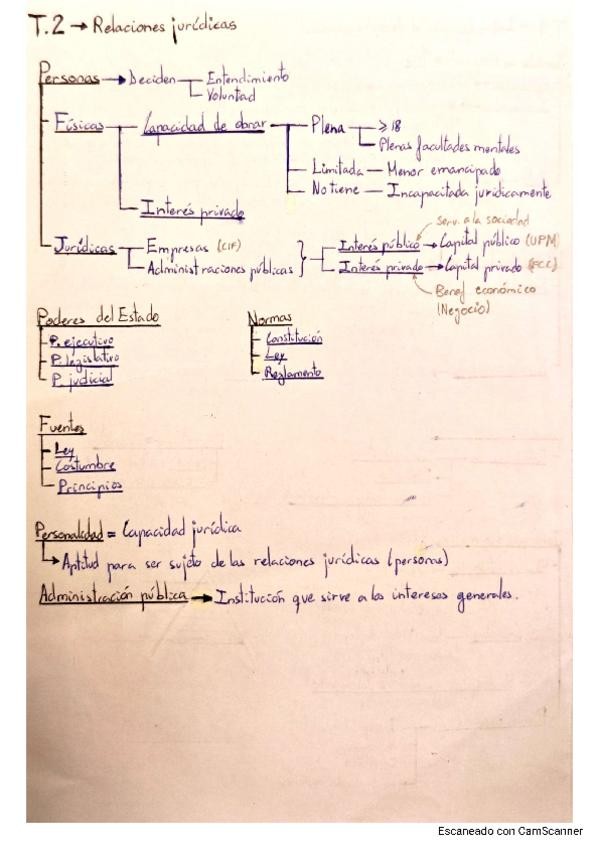 T.2 → Relaciones jurídicas
Personas → Deciden — Entendimiento
Voluntad
Físicas — Capacidad de obrar — Plena — ≥ 18
Plenas facultades mentales
Limitada — Menor emancipado
No tiene — Incapacitada jurídicamente
Interés privado
Serv. a la sociedad
Jurídicas — Empresas (CIF) — Interés público → Capital público (UPM)
Administraciones públicas — Interés privado → Capital privado (FCC)
Benef económico
(Negocio)
Poderes del Estado
P. ejecutivo
P. legislativo
P. judicial
Normas
Constitución
Ley
Reglamento
Fuentes
Ley
Costumbre
Principios
Personalidad = Capacidad jurídica
→ Aptitud para ser sujeto de las relaciones jurídicas (personas)
Administración pública → Institución que sirve a los intereses generales.
Escaneado con CamScanner